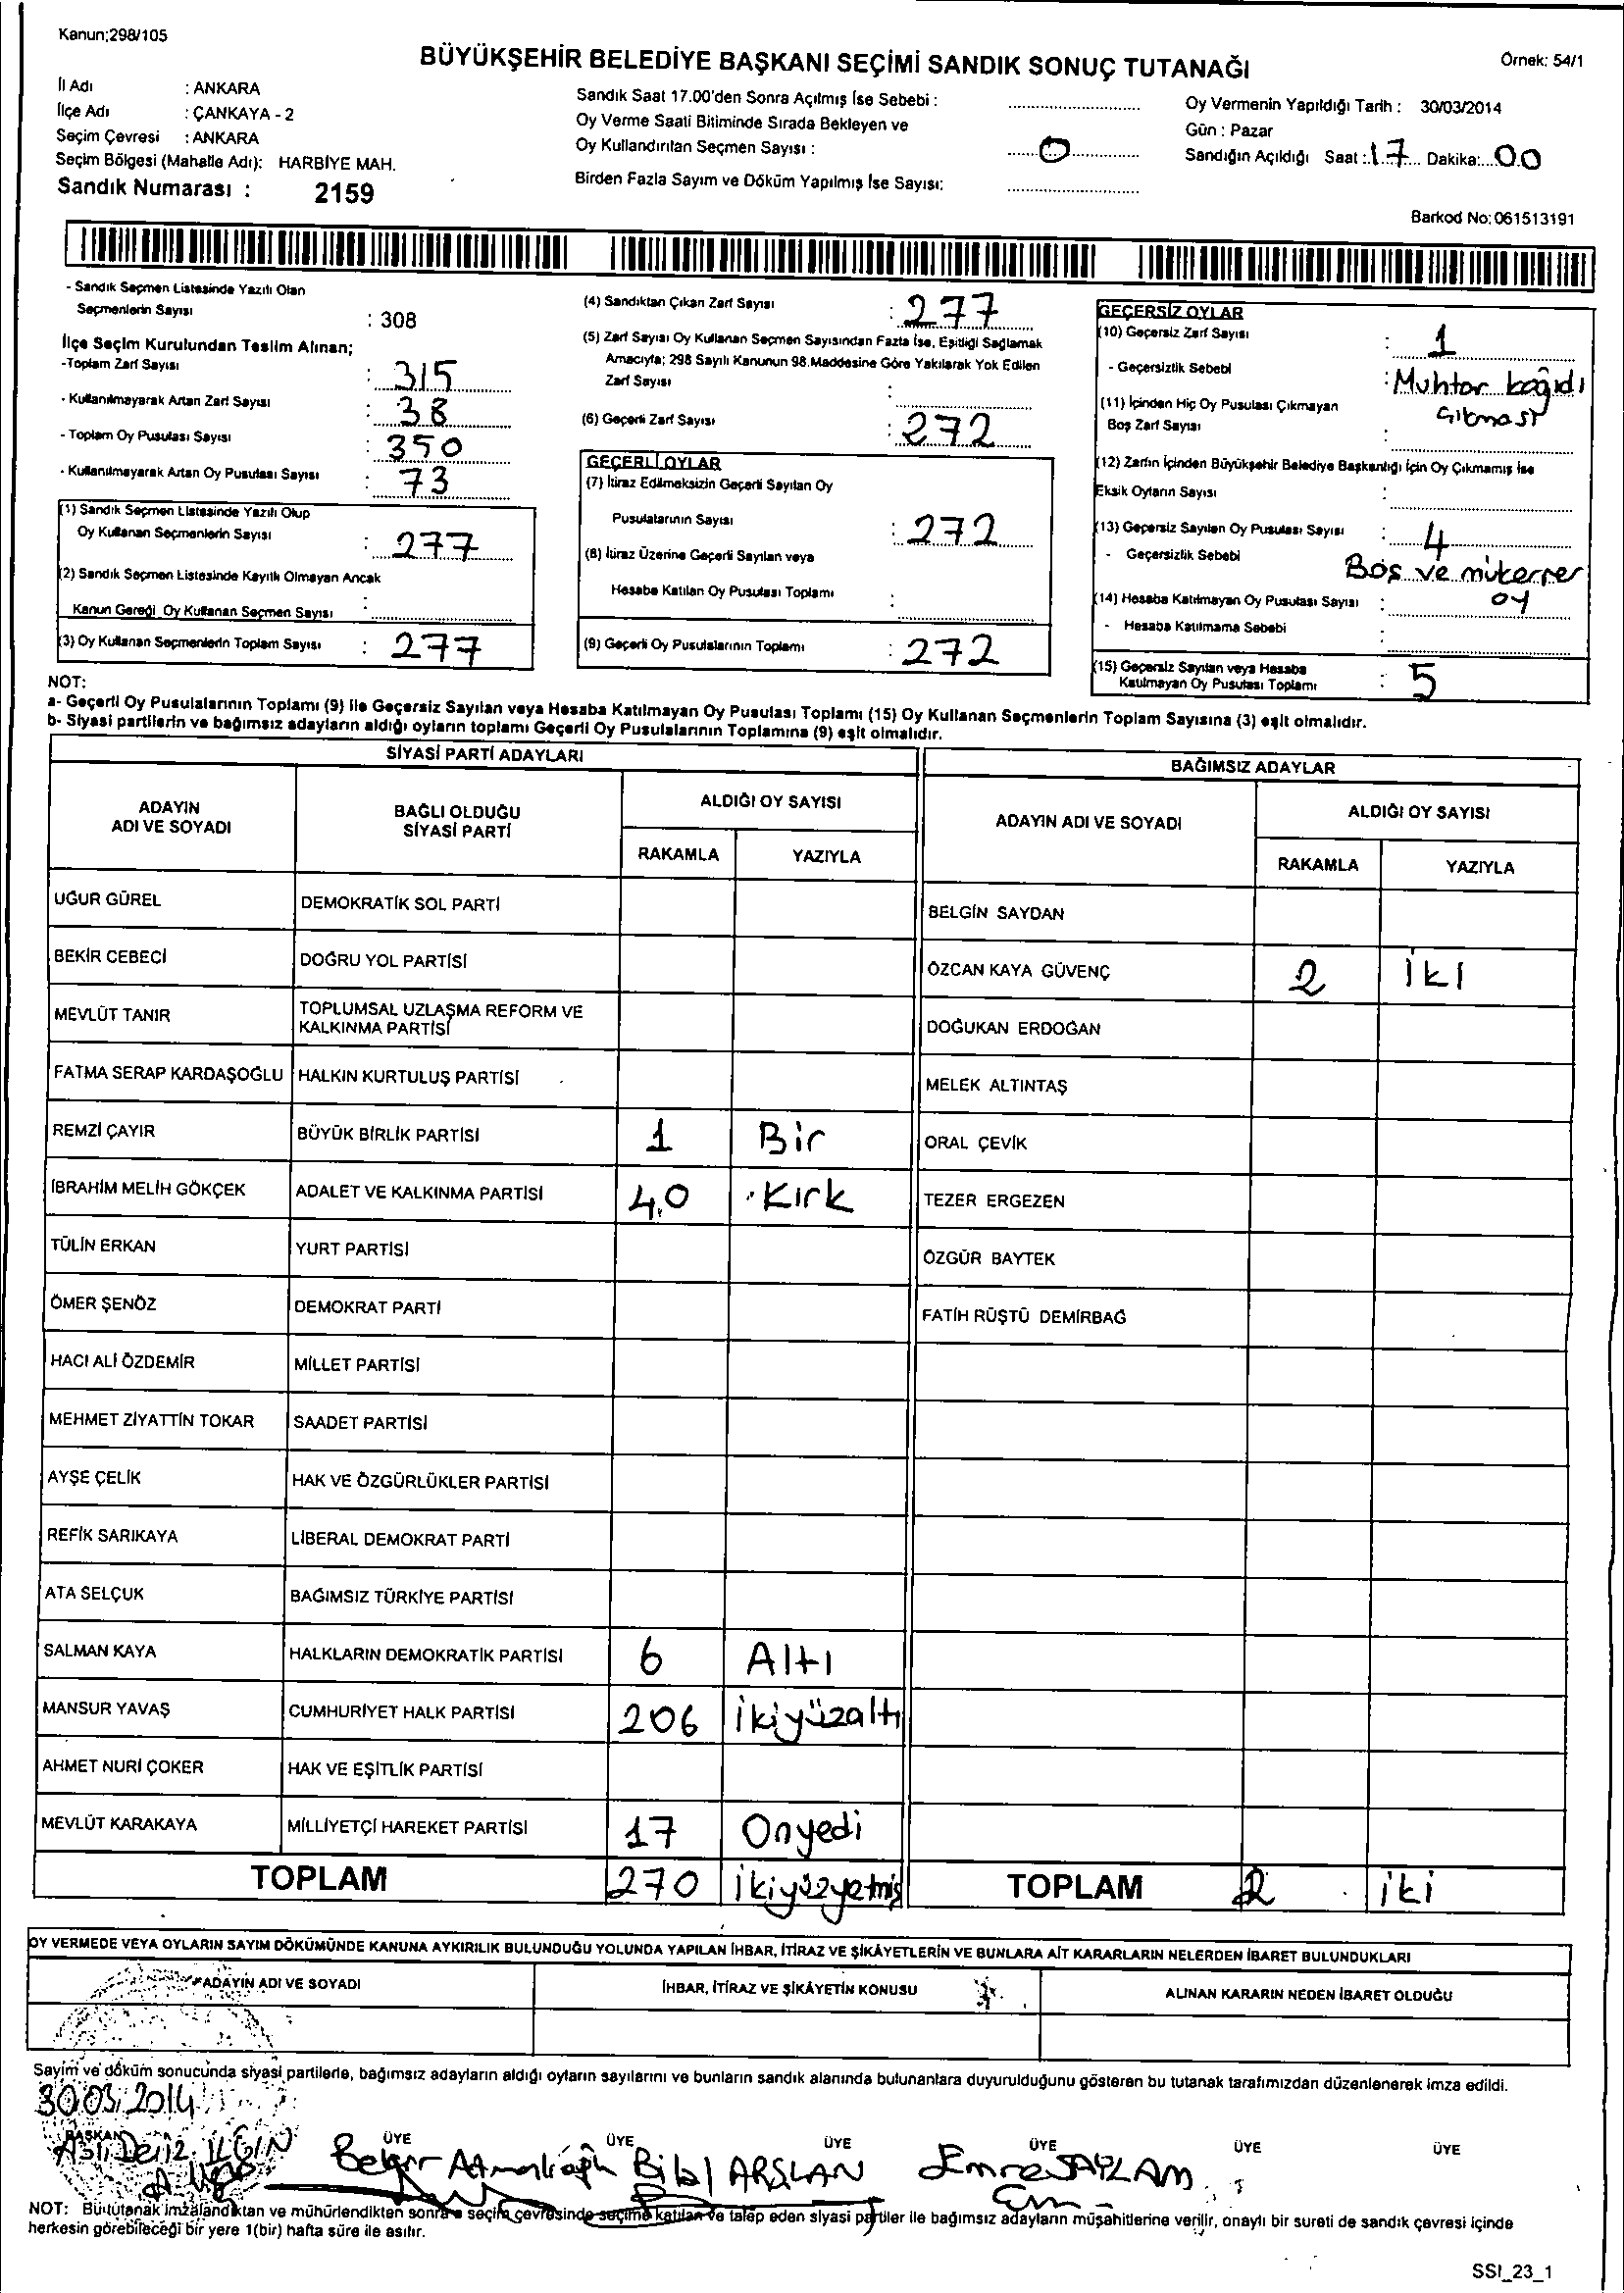 Kanun;298/105
BÜYÜKŞEHİR BELEDİYE BAŞKANI SEÇİMİ SANDIK SONUÇ TUTANAĞI
Örnek: 54/1
İl Adı : ANKARA
İlçe Adı : ÇANKAYA - 2
Seçim Çevresi : ANKARA
Seçim Bölgesi (Mahalle Adı): HARBİYE MAH.
Sandık Numarası : 2159
Sandık Saat 17.00'den Sonra Açılmış İse Sebebi :
Oy Verme Saati Bitiminde Sırada Bekleyen ve
Oy Kullandırılan Seçmen Sayısı : 0
Birden Fazla Sayım ve Döküm Yapılmış İse Sayısı:
Oy Vermenin Yapıldığı Tarih : 30/03/2014
Gün : Pazar
Sandığın Açıldığı Saat : 17 Dakika: 00
Barkod No: 061513191
- Sandık Seçmen Listesinde Yazılı Olan
Seçmenlerin Sayısı : 308
İlçe Seçim Kurulundan Teslim Alınan;
-Toplam Zarf Sayısı : 315
- Kullanılmayarak Artan Zarf Sayısı : 38
- Toplam Oy Pusulası Sayısı : 350
- Kullanılmayarak Artan Oy Pusulası Sayısı : 73
(1) Sandık Seçmen Listesinde Yazılı Olup
Oy Kullanan Seçmenlerin Sayısı : 277
(2) Sandık Seçmen Listesinde Kayıtlı Olmayan Ancak
Kanun Gereği Oy Kullanan Seçmen Sayısı :
(3) Oy Kullanan Seçmenlerin Toplam Sayısı : 277
(4) Sandıktan Çıkan Zarf Sayısı : 277
(5) Zarf Sayısı Oy Kullanan Seçmen Sayısından Fazla İse, Eşitliği Sağlamak
Amacıyla; 298 Sayılı Kanunun 98.Maddesine Göre Yakılarak Yok Edilen
Zarf Sayısı :
(6) Geçerli Zarf Sayısı : 272
GEÇERLİ OYLAR
(7) İtiraz Edilmeksizin Geçerli Sayılan Oy
Pusulalarının Sayısı : 272
(8) İtiraz Üzerine Geçerli Sayılan veya
Hesaba Katılan Oy Pusulası Toplamı :
(9) Geçerli Oy Pusulalarının Toplamı : 272
GEÇERSİZ OYLAR
(10) Geçersiz Zarf Sayısı : 1
- Geçersizlik Sebebi : Muhtar kağıdı
çıkması
(11) İçinden Hiç Oy Pusulası Çıkmayan
Boş Zarf Sayısı :
(12) Zarfın İçinden Büyükşehir Belediye Başkanlığı İçin Oy Çıkmamış ise
Eksik Oyların Sayısı :
(13) Geçersiz Sayılan Oy Pusulası Sayısı : 4
- Geçersizlik Sebebi Boş ve mükerrer
oy
(14) Hesaba Katılmayan Oy Pusulası Sayısı :
- Hesaba Katılmama Sebebi :
(15) Geçersiz Sayılan veya Hesaba
Katılmayan Oy Pusulası Toplamı : 5
NOT:
a- Geçerli Oy Pusulalarının Toplamı (9) ile Geçersiz Sayılan veya Hesaba Katılmayan Oy Pusulası Toplamı (15) Oy Kullanan Seçmenlerin Toplam Sayısına (3) eşit olmalıdır.
b- Siyasi partilerin ve bağımsız adayların aldığı oyların toplamı Geçerli Oy Pusulalarının Toplamına (9) eşit olmalıdır.
SİYASİ PARTİ ADAYLARI
ADAYIN
ADI VE SOYADI
BAĞLI OLDUĞU
SİYASİ PARTİ
ALDIĞI OY SAYISI
RAKAMLA YAZIYLA
UĞUR GÜREL DEMOKRATİK SOL PARTİ
BEKİR CEBECİ DOĞRU YOL PARTİSİ
MEVLÜT TANIR TOPLUMSAL UZLAŞMA REFORM VE
KALKINMA PARTİSİ
FATMA SERAP KARDAŞOĞLU HALKIN KURTULUŞ PARTİSİ
REMZİ ÇAYIR BÜYÜK BİRLİK PARTİSİ 1 Bir
İBRAHİM MELİH GÖKÇEK ADALET VE KALKINMA PARTİSİ 40 Kırk
TÜLİN ERKAN YURT PARTİSİ
ÖMER ŞENÖZ DEMOKRAT PARTİ
HACI ALİ ÖZDEMİR MİLLET PARTİSİ
MEHMET ZİYATTİN TOKAR SAADET PARTİSİ
AYŞE ÇELİK HAK VE ÖZGÜRLÜKLER PARTİSİ
REFİK SARIKAYA LİBERAL DEMOKRAT PARTİ
ATA SELÇUK BAĞIMSIZ TÜRKİYE PARTİSİ
SALMAN KAYA HALKLARIN DEMOKRATİK PARTİSİ 6 Altı
MANSUR YAVAŞ CUMHURİYET HALK PARTİSİ 206 ikiyüzaltı
AHMET NURİ ÇOKER HAK VE EŞİTLİK PARTİSİ
MEVLÜT KARAKAYA MİLLİYETÇİ HAREKET PARTİSİ 17 Onyedi
TOPLAM 270 ikiyüzyetmiş
BAĞIMSIZ ADAYLAR
ADAYIN ADI VE SOYADI
ALDIĞI OY SAYISI
RAKAMLA YAZIYLA
BELGİN SAYDAN
ÖZCAN KAYA GÜVENÇ 2 İki
DOĞUKAN ERDOĞAN
MELEK ALTINTAŞ
ORAL ÇEVİK
TEZER ERGEZEN
ÖZGÜR BAYTEK
FATİH RÜŞTÜ DEMİRBAĞ
TOPLAM 2 iki
OY VERMEDE VEYA OYLARIN SAYIM DÖKÜMÜNDE KANUNA AYKIRILIK BULUNDUĞU YOLUNDA YAPILAN İHBAR, İTİRAZ VE ŞİKÂYETLERİN VE BUNLARA AİT KARARLARIN NELERDEN İBARET BULUNDUKLARI
ADAYIN ADI VE SOYADI İHBAR, İTİRAZ VE ŞİKÂYETİN KONUSU ALINAN KARARIN NEDEN İBARET OLDUĞU
Sayım ve döküm sonucunda siyasi partilerle, bağımsız adayların aldığı oyların sayılarını ve bunların sandık alanında bulunanlara duyurulduğunu gösteren bu tutanak tarafımızdan düzenlenerek imza edildi.
30.03.2014
BAŞKAN ÜYE ÜYE ÜYE ÜYE ÜYE ÜYE
Aslı Deniz ILGIN Bilal ARSLAN Emre SAYLAM
NOT: Bu tutanak imzalandıktan ve mühürlendikten sonra seçim çevresinde seçime katılan ve talep eden siyasi partiler ile bağımsız adayların müşahitlerine verilir, onaylı bir sureti de sandık çevresi içinde
herkesin görebileceği bir yere 1(bir) hafta süre ile asılır.
SSI_23_1